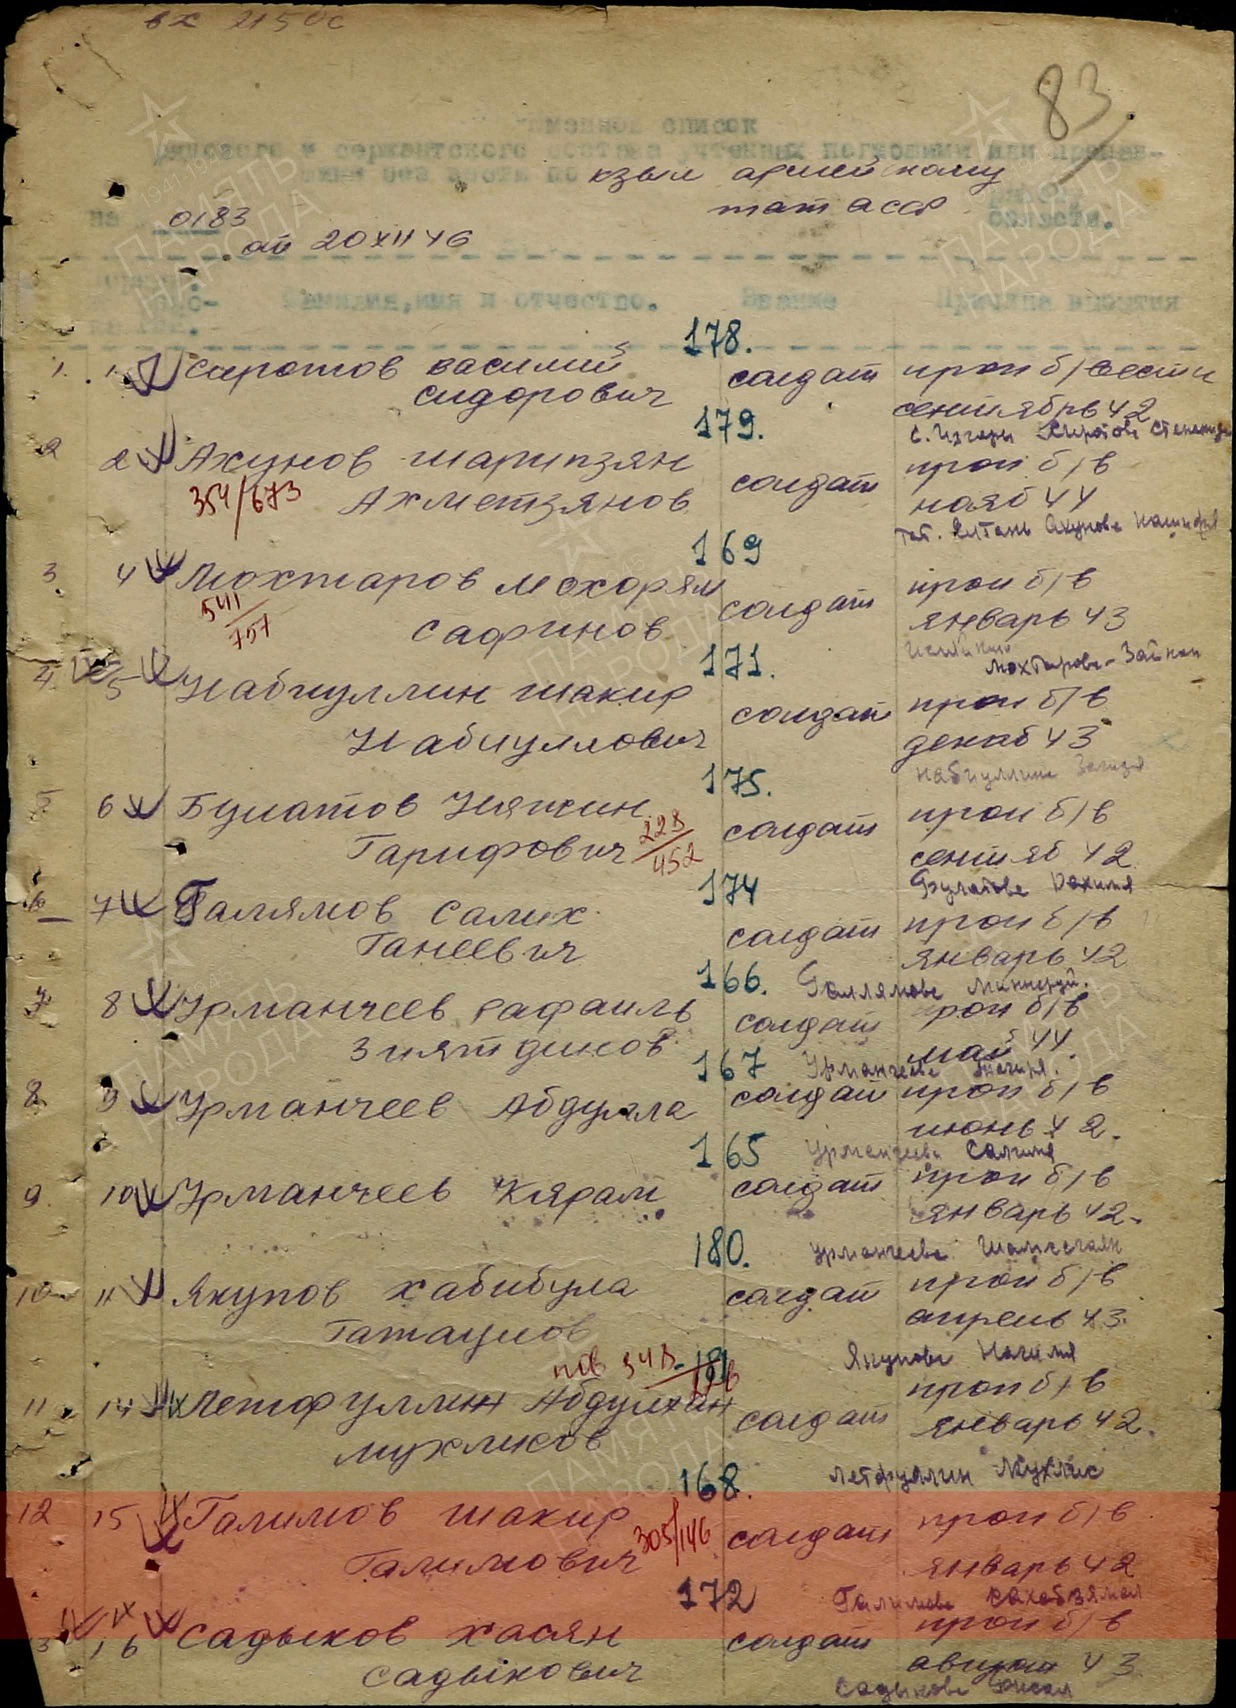 вх 2150с
83
именной список
рядового и сержантского состава учтенных погибшими или пропав-
шими без вести по кзыл армейскому
тат асср области.
на 0183
от 20 XII 46
Фамилия, имя и отчество. Звание Причина выбытия
178.
1. 1 Сиротов василий солдат проп б/вести
сидорович сентябрь 42
179. с. Сиротова
2 2 Ахунов шарипзян солдат проп б/в
354/673 Ахметзянов нояб 44
169 Ахунова
3 4 Мохтаров Мохорям солдат проп б/в
541/757 Сафинов январь 43
171. Мохтарова
4 5 Набиуллин шакир солдат проп б/в
Набиуллович декаб 43
175. Набиуллина
6 Булатов солдат проп б/в
Гарифович 228/452 сентяб 42
174 Булатова
6 7 Галямов Салих солдат проп б/в
Ганеевич январь 42
166. Галлямова
7 8 Урманчеев рафаиль солдат проп б/в
Зиятдинов май 44.
167 Урманчеева
8 9 Урманчеев Абдулла солдат проп б/в
июнь 42.
165 Урманчеева Салима
9. 10 Урманчеев Кярам солдат проп б/в
январь 42.
180. Урманчеева
10 11 Якупов хабибула солдат проп б/в
Гатаулов апрель 43.
181 Якупова
11. 14 Летфуллин Абдулхан солдат проп б/в
январь 42.
168. Летфуллин Мухлис
12 15 Галимов шакир солдат проп б/в
Галимович 305/146 январь 42
172 Галимова
13 16 Садыков хасян солдат проп б/в
Садыкович август 43
Садыкова
ПАМЯТЬ НАРОДА